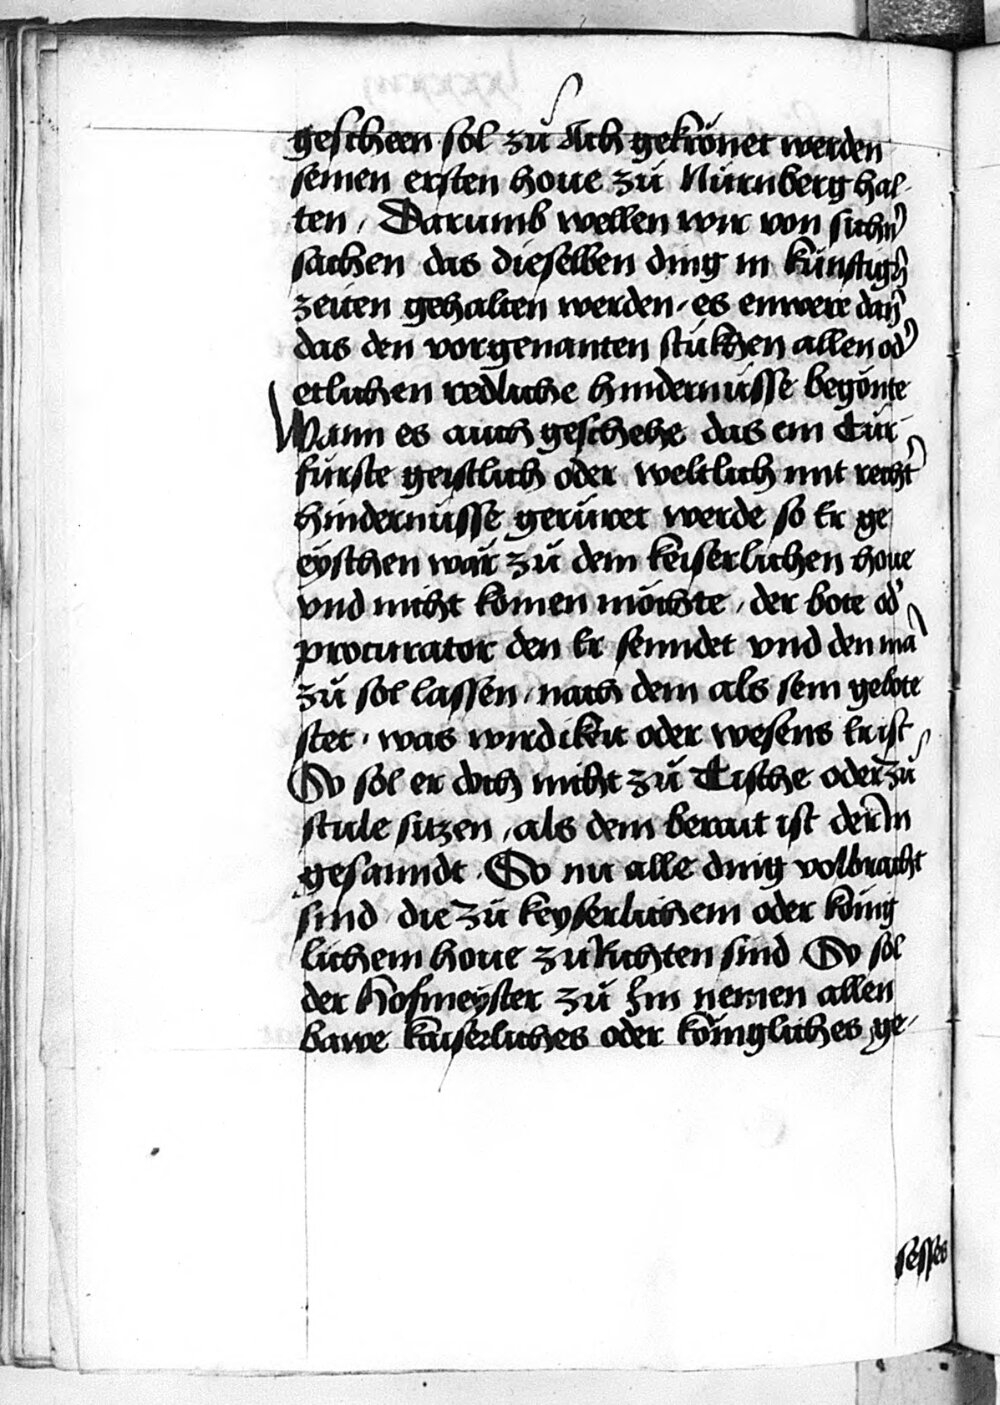 gescheen sol zu Ach gekrönet werden
seinen ersten houe zü Nürnberg hal-
ten / Darumb wellen wir von sichñ
sachen das dieselben ding in künftigñ
zeiten gehalten werden / es enwere dañ
das den vorgenanten stükhen allen od'
etlichen redliche hindernüsse begönte
Wann es auch geschehe das ein Cür
fürste geistlich oder weltlich mit recht'
hindernüsse gerüret werde so Er ge
eyschen wär zü dem keiserlichen houe
vnd nicht komen möchte / der bote od'
procurator den Er senndet vnd den mã
zü sol lassen / nach dem als sein gebote
stet / was wirdikeit oder wesens Er ist
So sol er doch nicht zü Tische oder zü
stule sitzen / als dem berait ist der In
gesanndt. So nu alle ding volbracht
sind die zü keyserlichem oder könig
lichem houe zu Richten sind So sol
der Hofmeyster zü Im nemen allen
bawe kaiserliches oder königliches ge-
sesses